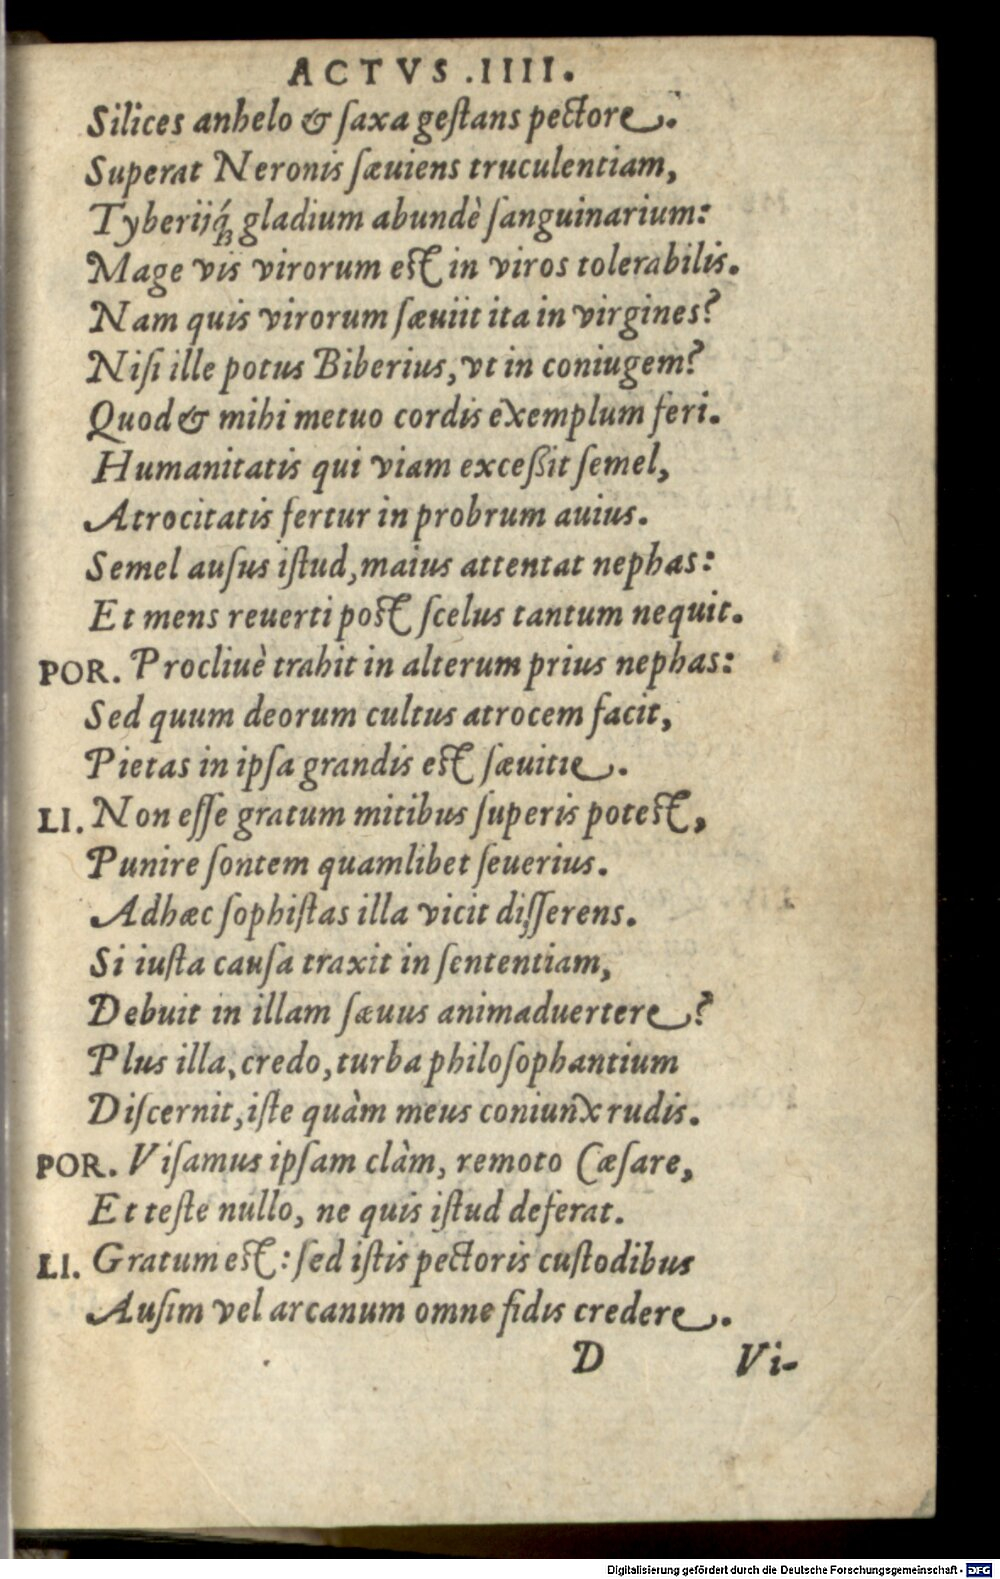 ACTVS .IIII.
Silices anhelo & ſaxa geſtans pectore.
Superat Neronis ſæuiens truculentiam,
Tyberijq́; gladium abundè ſanguinarium:
Mage vis virorum eſt in viros tolerabilis.
Nam quis virorum ſæuiit ita in virgines?
Niſi ille potus Biberius, vt in coniugem?
Quod & mihi metuo cordis exemplum feri.
Humanitatis qui viam exceßit ſemel,
Atrocitatis fertur in probrum auius.
Semel auſus iſtud, maius attentat nephas:
Et mens reuerti poſt ſcelus tantum nequit.
POR. Procliuè trahit in alterum prius nephas:
Sed quum deorum cultus atrocem facit,
Pietas in ipſa grandis eſt ſæuitie.
LI. Non eſſe gratum mitibus ſuperis poteſt,
Punire ſontem quamlibet ſeuerius.
Adhæc ſophiſtas illa vicit diſſerens.
Si iuſta cauſa traxit in ſententiam,
Debuit in illam ſæuus animaduertere?
Plus illa, credo, turba philoſophantium
Diſcernit, iſte quàm meus coniunx rudis.
POR. Viſamus ipſam clàm, remoto Cæſare,
Et teſte nullo, ne quis iſtud deferat.
LI. Gratum eſt: ſed iſtis pectoris cuſtodibus
Auſim vel arcanum omne fidis credere.
D Vi-
Digitalisierung gefördert durch die Deutsche Forschungsgemeinschaft - DFG